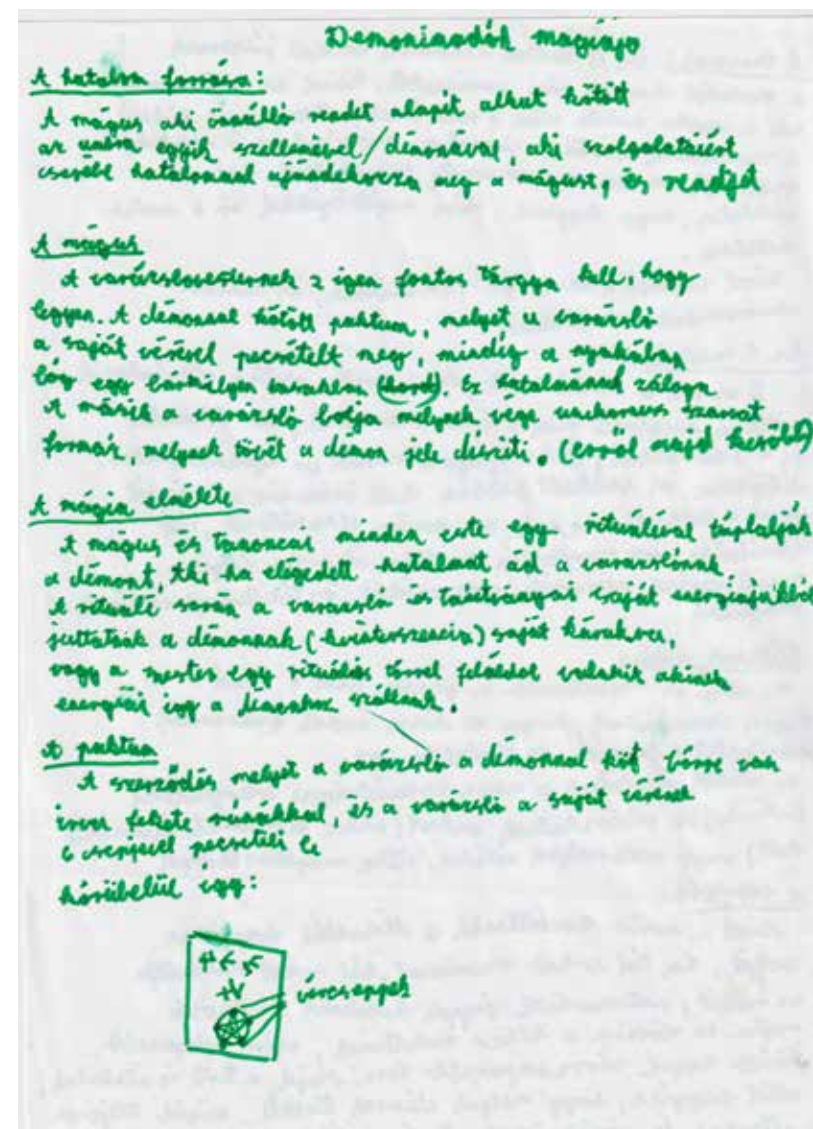 Demoniadók magiája
A hatalom forrása:
A mágus aki önálló rendet alapit alkut kötött
az egyik szellemével/démonával, aki szolgálataiért
cserébe hatalommal ajándékozza meg a mágust, és rendjét
A mágus
A varázslómesternek 2 igen fontos tárgya kell, hogy
legyen. A démonnal kötött paktum, melyet a varázsló
a saját vérével pecsételt meg, mindig a nyakában
lóg egy bármilyen (hord). Ez hatalmának záloga
A másik a varázsló botja melynek vége unikornis szarvat
formáz, melynek tövét a démon jele disziti. (erről majd később)
A mágia elmélete
A mágus és tanoncai minden este egy rituáléval táplálják
a démont, Aki ha elégedett hatalmat ád a varázslónak
A rituálé során a varázsló és tanitványai saját energiájukból
juttatnak a démonnak (kvinteszencia) saját kárukra,
vagy a mester egy rituális tőrrel feláldoz valakit akinek
energiái igy a démonhoz szállnak.
A paktum
A szerződés melyet a varázsló a démonnal köt bőrre van
irva fekete rúnákkal, és a varázsló a saját vérének
6 cseppjével pecsételi le
körübelül igy:
vércseppek